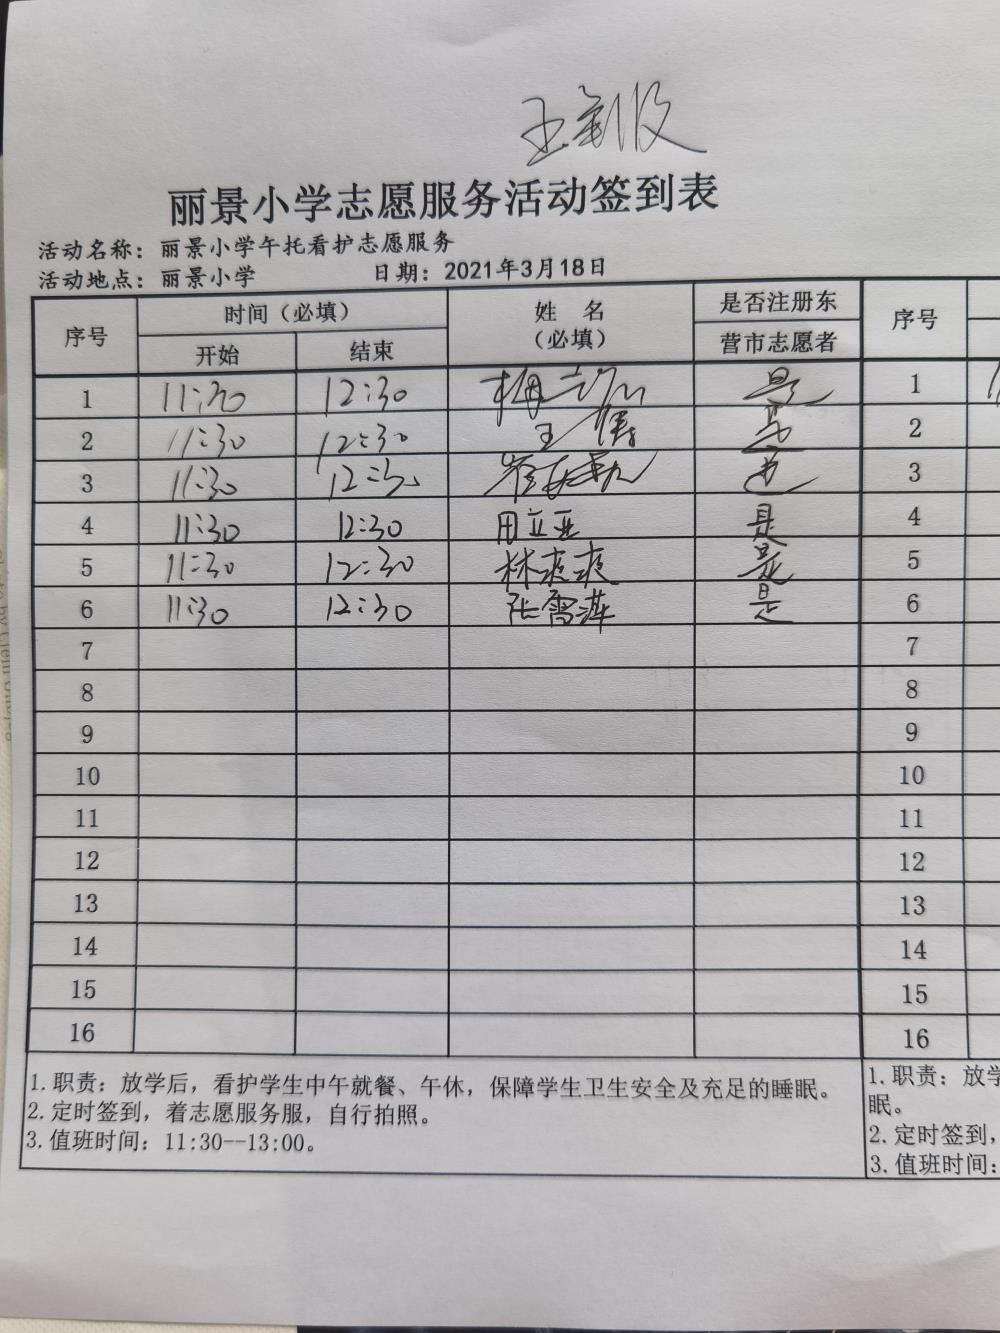 丽景小学志愿服务活动签到表
活动名称：丽景小学午托看护志愿服务
活动地点：丽景小学 日期：2021年3月18日
序号 时间（必填） 姓 名 是否注册东 序号
开始 结束 （必填） 营市志愿者
1 11:30 12:30 是 1
2 11:30 12:30 王 是 2
3 11:30 12:30 崔 是 3
4 11:30 12:30 田立亚 是 4
5 11:30 12:30 林爽爽 是 5
6 11:30 12:30 张雪萍 是 6
7 7
8 8
9 9
10 10
11 11
12 12
13 13
14 14
15 15
16 16
1.职责：放学后，看护学生中午就餐、午休，保障学生卫生安全及充足的睡眠。
2.定时签到，着志愿服务服，自行拍照。
3.值班时间：11:30--13:00。
1.职责：放学
眠。
2.定时签到，
3.值班时间：